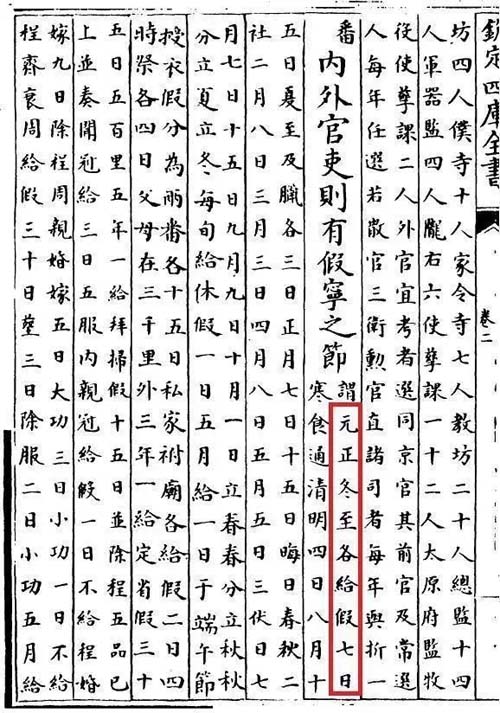 欽定四庫全書
卷二
坊四人僕寺十人家令寺七人教坊二十人總監十四
人軍器監四人隴右六使孳課一十二人太原府監牧
役使孳課二人外官宜考者選同京官其前官及常選
人每年任選若散官三衛勲官直諸司者每年與折一
番
内外官吏則有假寧之節
謂元正冬至各給假七日
寒食通清明四日八月十
五日夏至及臘各三日正月七日十五日晦日春秋二
社二月八日三月三日四月八日五月五日三伏日七
月七日十五日九月九日十月一日立春春分立秋秋
分立夏立冬每旬給休假一日五月給一日于端午節
授衣假分為兩番各十五日私家祔廟各給假二日四
時祭各四日父母在三千里外三年一給定省假三十
五日五百里五年一給拜掃假十五日並除程五品已
上並奏聞冠給三日五服内親冠給假一日不給程婚
嫁九日除程周親婚嫁五日大功三日小功一日不給
程齊衰周給假三十日塟三日除服二日小功五月給